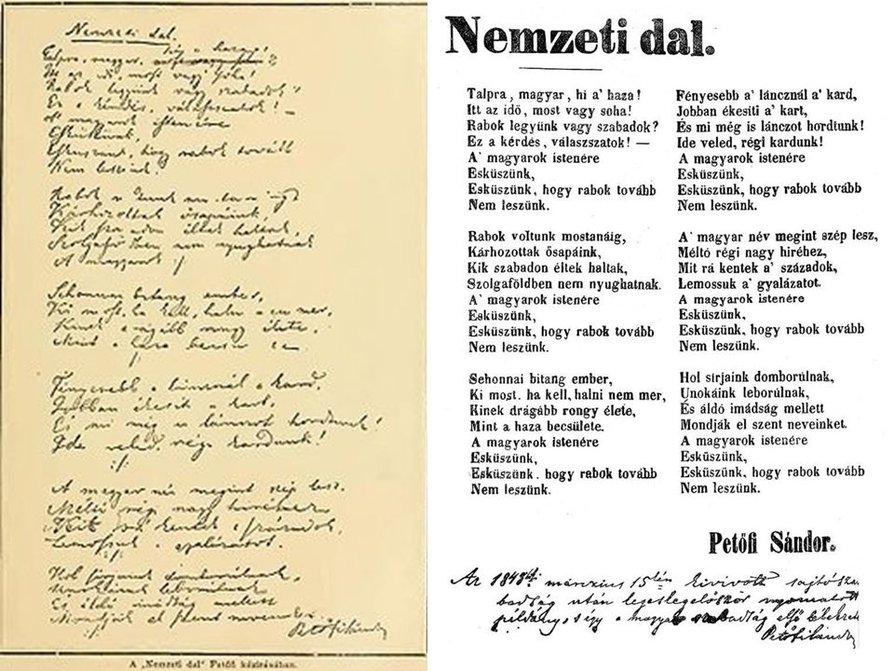 Nemzeti dal.
Talpra, magyar, hí a haza!
Itt az idő, most vagy soha!
Rabok legyünk vagy szabadok?
Ez a kérdés, válaszszatok! –
A magyarok istenére
Esküszünk,
Esküszünk, hogy rabok tovább
Nem leszünk.
Rabok
Kárhozottak ősapáink,
Kik szabadon éltek haltak,
Szolgaföldben nem nyughatnak
A magyarok :/:
Sehonnai bitang ember,
Ki most, ha kell, halni nem mer,
Kinek drágább rongy élete,
Mint a haza
Fényesebb a láncznál a kard,
Jobban ékesíti a kart,
És mi még is lánczot hordtunk!
Ide veled, régi kardunk!
:/:
A magyar név megint szép lesz,
Méltó régi nagy hiréhez
Mit rá kentek a századok,
Lemossuk a gyalázatot.
:/:
Hol sírjaink domborulnak,
Unokáink leborulnak,
És áldó imádság mellett
Mondják el szent neveinket.
Petőfi Sándor
A „Nemzeti dal" Petőfi kézirásában.
Nemzeti dal.
Talpra, magyar, hi a' haza!
Itt az idő, most vagy soha!
Rabok legyünk vagy szabadok?
Ez a' kérdés, válaszszatok! —
A' magyarok istenére
Esküszünk,
Esküszünk, hogy rabok tovább
Nem leszünk.
Rabok voltunk mostanáig,
Kárhozottak ősapáink,
Kik szabadon éltek haltak,
Szolgaföldben nem nyughatnak.
A' magyarok istenére
Esküszünk,
Esküszünk, hogy rabok tovább
Nem leszünk.
Sehonnai bitang ember,
Ki most. ha kell, halni nem mer,
Kinek drágább rongy élete,
Mint a haza becsülete.
A magyarok istenére
Esküszünk,
Esküszünk. hogy rabok tovább
Nem leszünk.
Fényesebb a' láncznál a' kard,
Jobban ékesíti a' kart,
És mi még is lánczot hordtunk!
Ide veled, régi kardunk!
A magyarok istenére
Esküszünk,
Esküszünk, hogy rabok tovább
Nem leszünk.
A' magyar név megint szép lesz,
Méltó régi nagy hiréhez,
Mit rá kentek a' századok,
Lemossuk a' gyalázatot.
A magyarok istenére
Esküszünk,
Esküszünk, hogy rabok tovább
Nem leszünk.
Hol sirjaink domborulnak,
Unokáink leborulnak,
És áldó imádság mellett
Mondják el szent neveinket.
A magyarok istenére
Esküszünk,
Esküszünk, hogy rabok tovább
Nem leszünk.
Petőfi Sándor.
Az 1848 márczius 15kén kivivott sajtósza-
badság után legeslegelőször nyomatott
példány, s így a magyar szabadság első
Petőfi Sándor